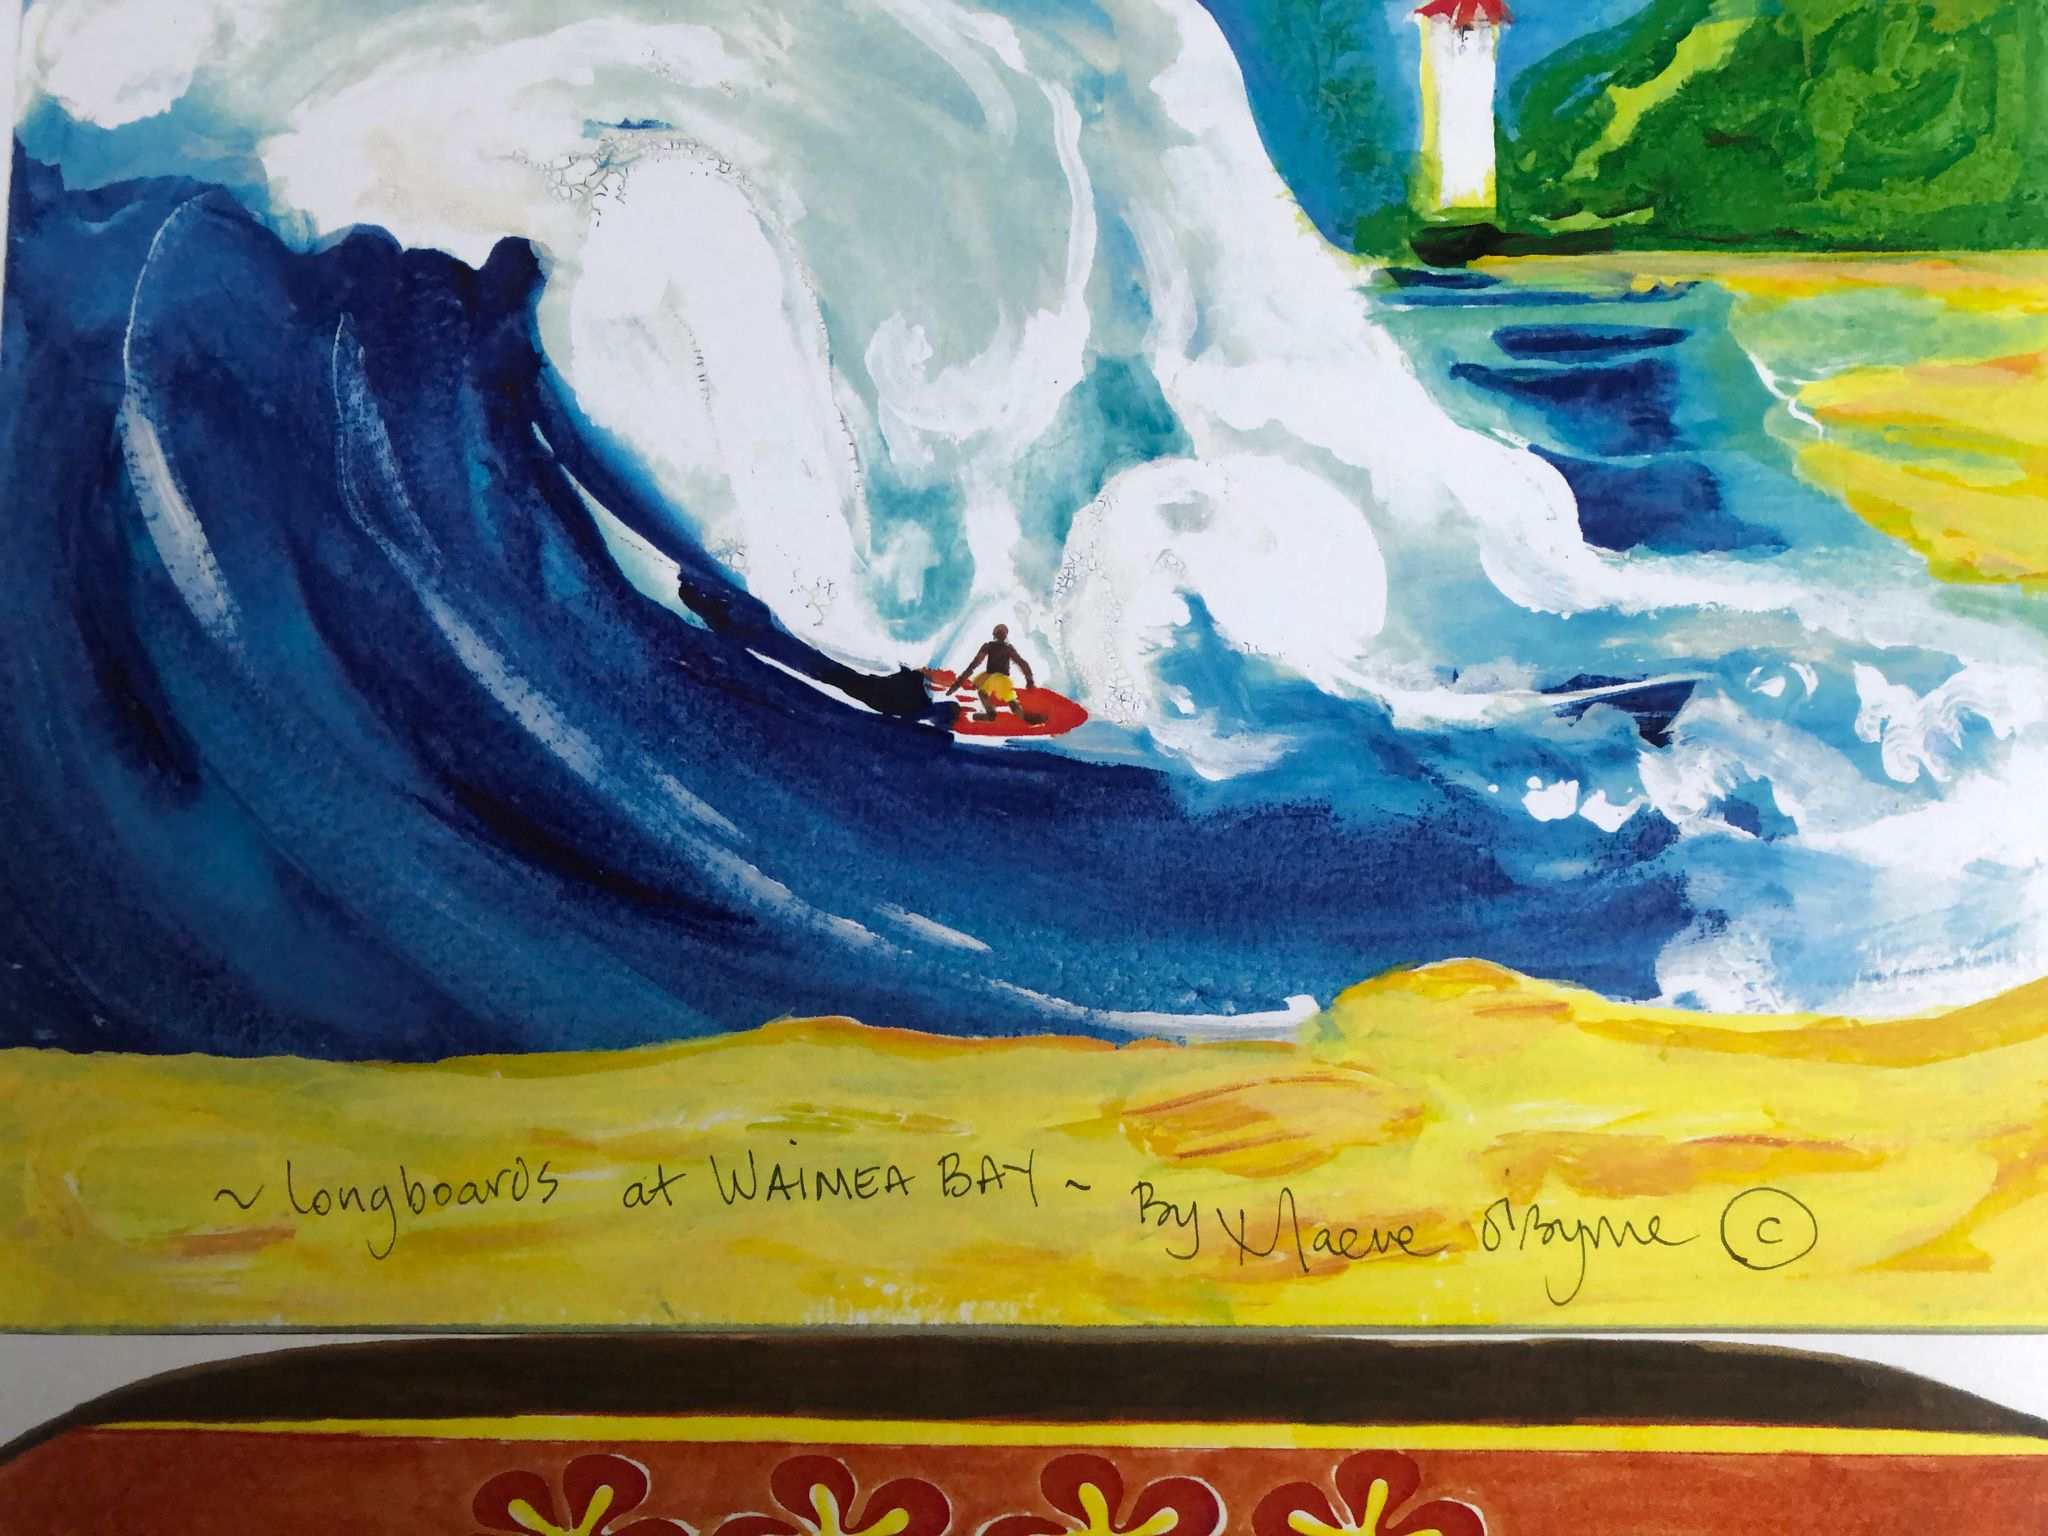 ~ Longboards at WAIMEA BAY ~ By Maeve O'Byrne ©